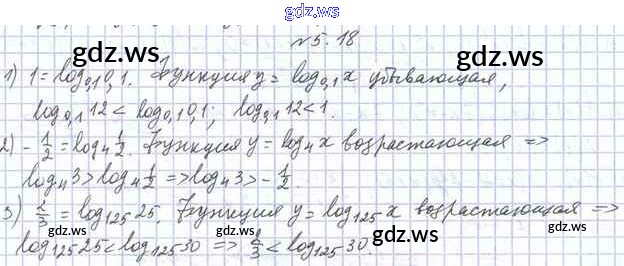 gdz.ws
№5.18
gdz.ws gdz.ws
1) 1 = log₀,₁0,1. Функция y = log₀,₁x убывающая,
log₀,₁12 < log₀,₁0,1; log₀,₁12 < 1.
2) -1/2 = log₄1/2. Функция y = log₄x возрастающая =>
log₄3 > log₄1/2 => log₄3 > -1/2.
3) 2/3 = log₁₂₅25. Функция y = log₁₂₅x возрастающая =>
log₁₂₅25 < log₁₂₅30 => 2/3 < log₁₂₅30.
gdz.ws gdz.ws